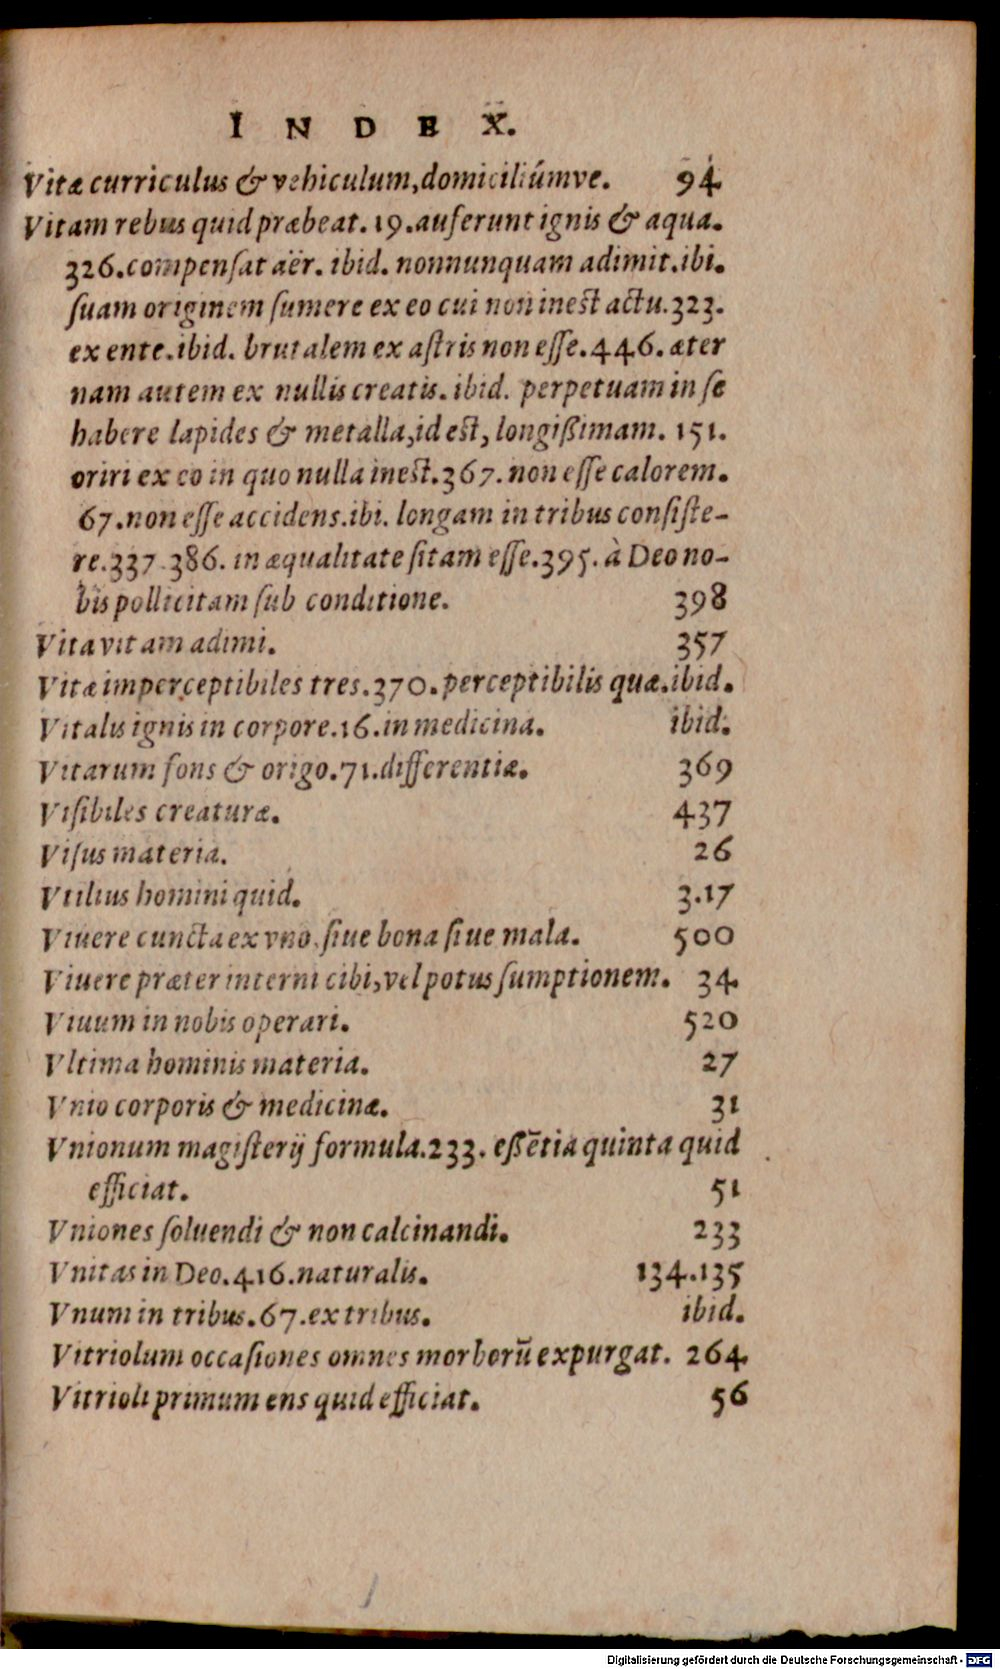 INDEX.
Vitæ curriculus & vehiculum, domiciliúmve. 94
Vitam rebus quid præbeat. 19. auferunt ignis & aqua.
326. compenſat aër. ibid. nonnunquam adimit. ibi.
ſuam originem ſumere ex eo cui non ineſt actu. 323.
ex ente. ibid. brutalem ex aſtris non eſſe. 446. æter
nam autem ex nullis creatis. ibid. perpetuam in ſe
habere lapides & metalla, id eſt, longißimam. 151.
oriri ex eo in quo nulla ineſt. 367. non eſſe calorem.
67. non eſſe accidens. ibi. longam in tribus conſiſte-
re. 337. 386. in æqualitate ſitam eſſe. 395. à Deo no-
bis pollicitam ſub conditione. 398
Vita vitam adimi. 357
Vitæ imperceptibiles tres. 370. perceptibilis quæ. ibid.
Vitalis ignis in corpore. 16. in medicina. ibid.
Vitarum fons & origo. 71. differentiæ. 369
Viſibiles creaturæ. 437
Viſus materia. 26
Vtilius homini quid. 3.17
Viuere cuncta ex vno, ſiue bona ſiue mala. 500
Viuere præter interni cibi, vel potus ſumptionem. 34
Viuum in nobis operari. 520
Vltima hominis materia. 27
Vnio corporis & medicinæ. 31
Vnionum magiſterij formula. 233. eſſẽtia quinta quid
efficiat. 51
Vniones ſoluendi & non calcinandi. 233
Vnitas in Deo. 416. naturalis. 134.135
Vnum in tribus. 67. ex tribus. ibid.
Vitriolum occaſiones omnes morborū expurgat. 264
Vitrioli primum ens quid efficiat. 56
Digitalisierung gefördert durch die Deutsche Forschungsgemeinschaft - DFG